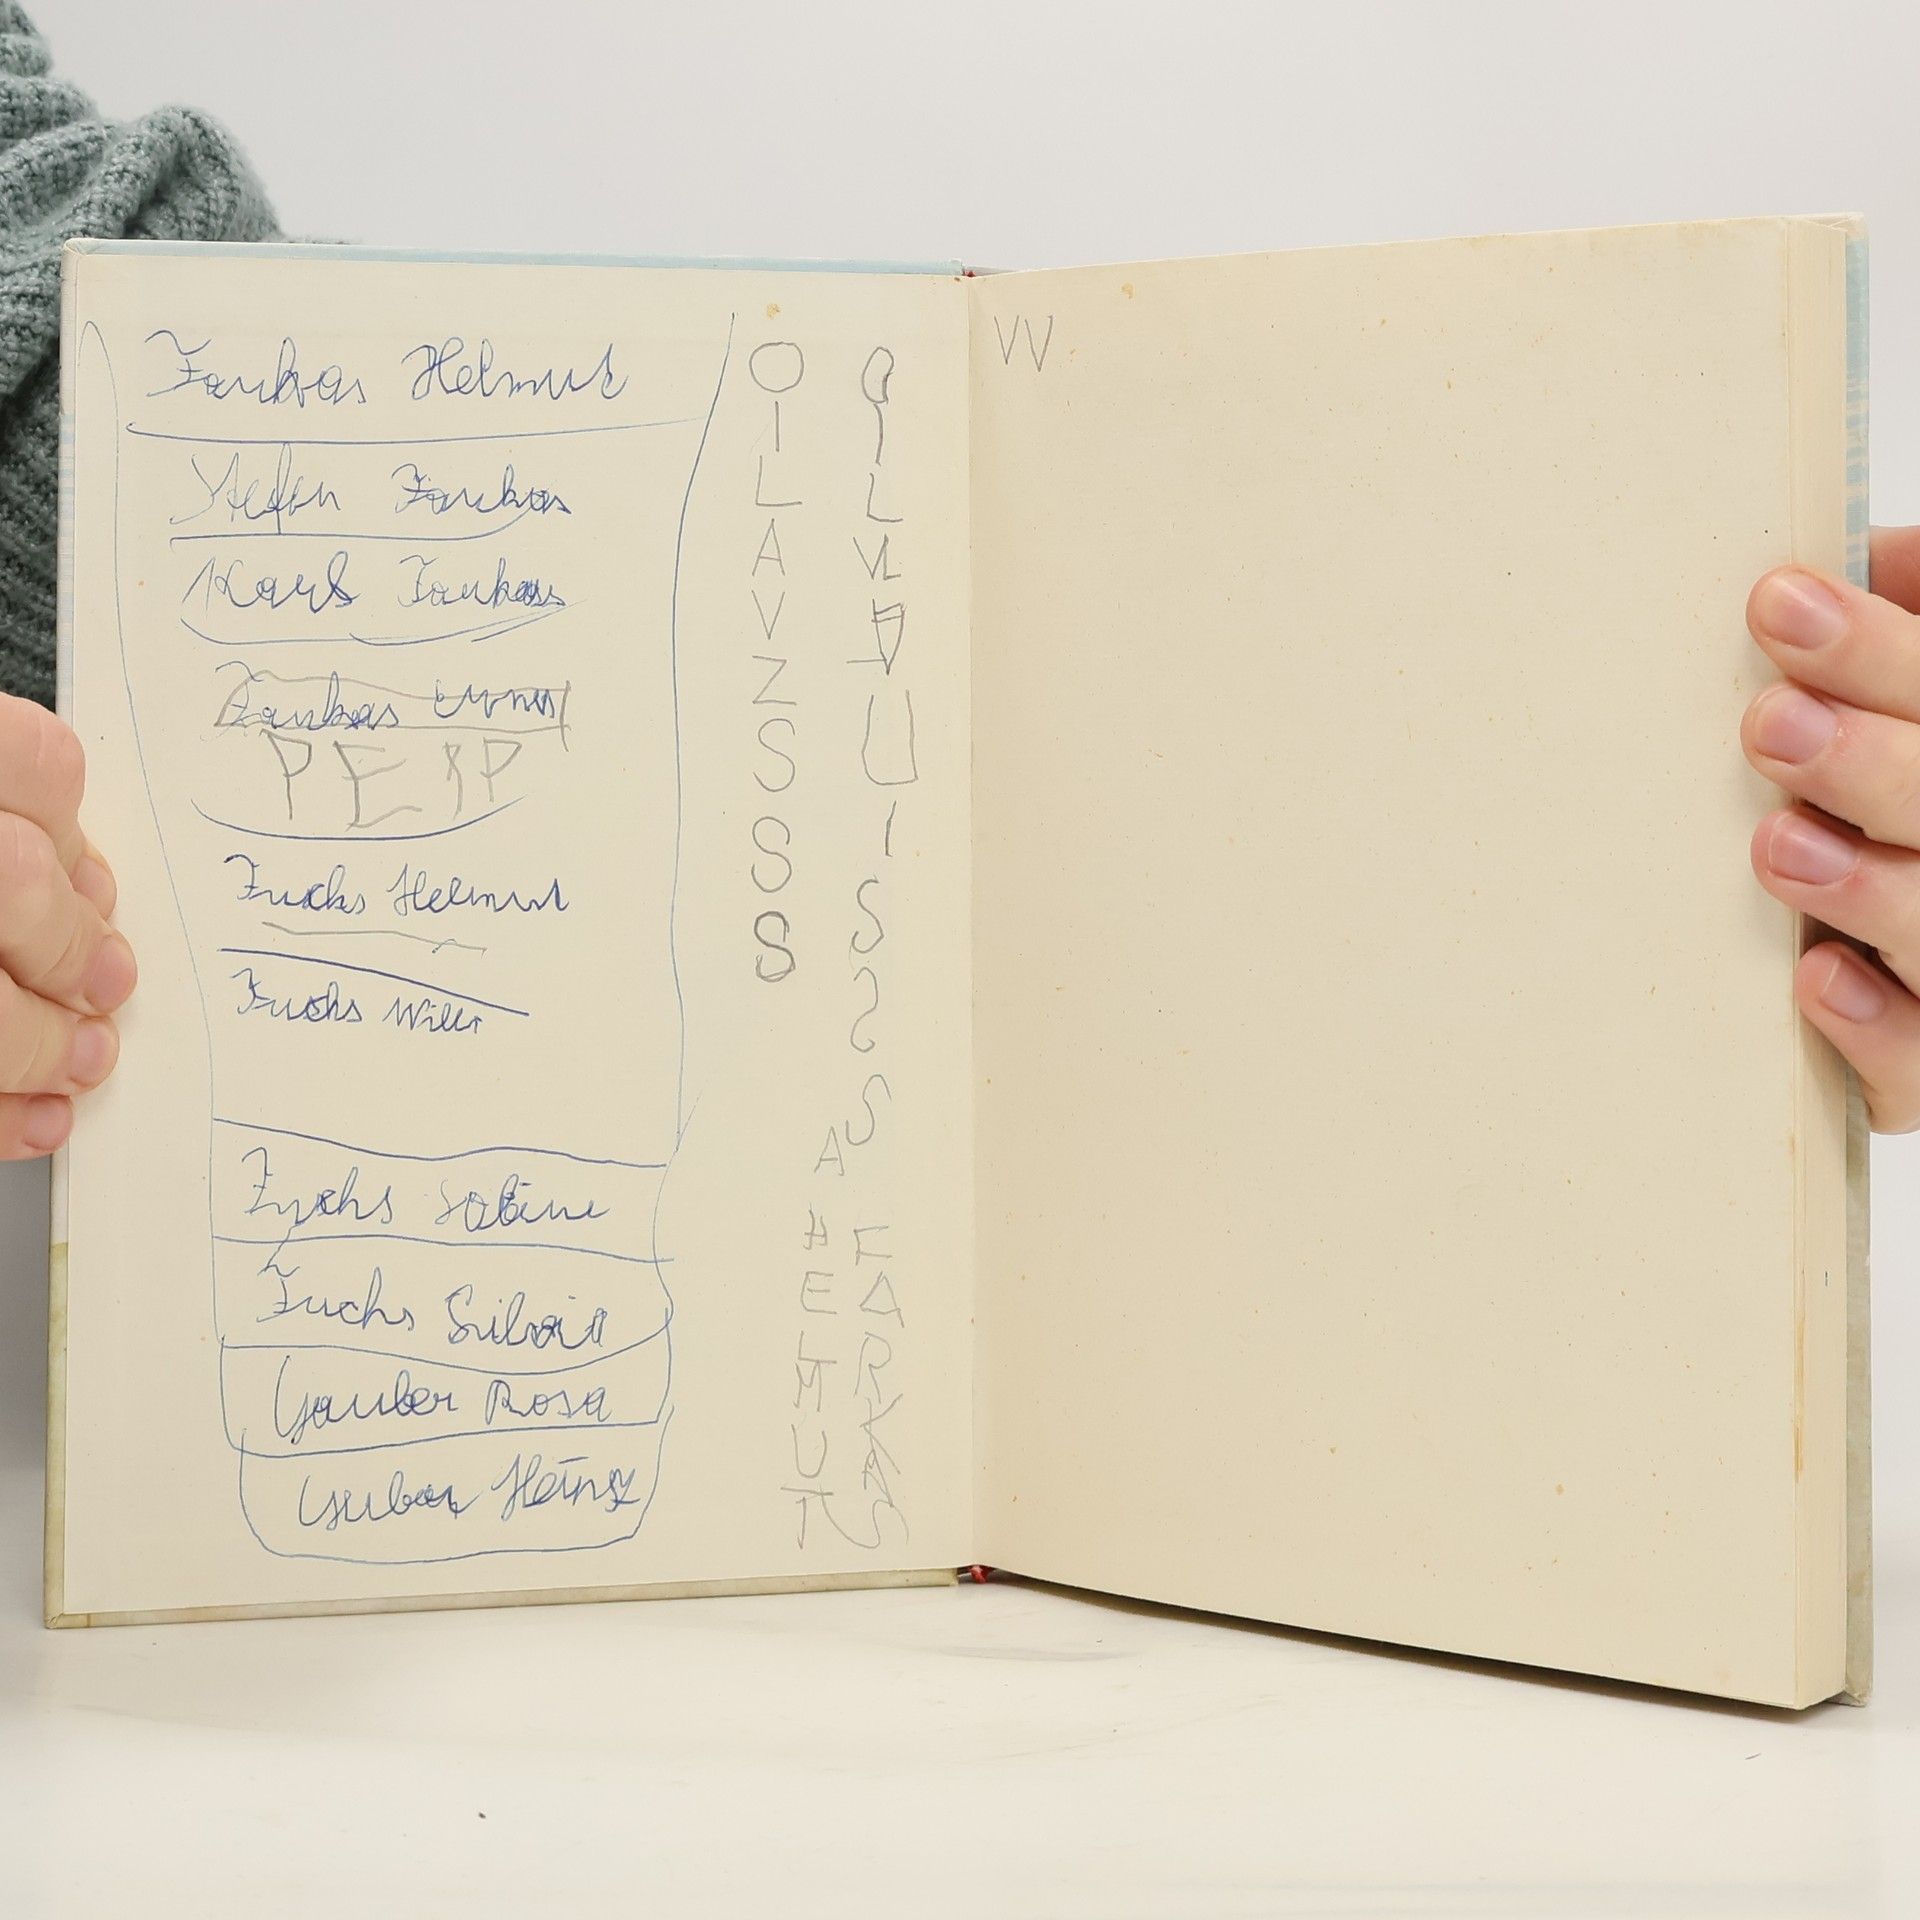 Farkas Helmut
Stefan Farkas
Karl Farkas
Farkas
PEPP
Fuchs Helmut
Fuchs Willi
Fuchs Sabine
Fuchs Silvia
Gauber Rosa
Heinz
O
I
L
A
V
Z
S
S
S
O
I
L
U
I
S
S
S
A
H
E
L
M
U
T
F
A
R
K
A
S
VV